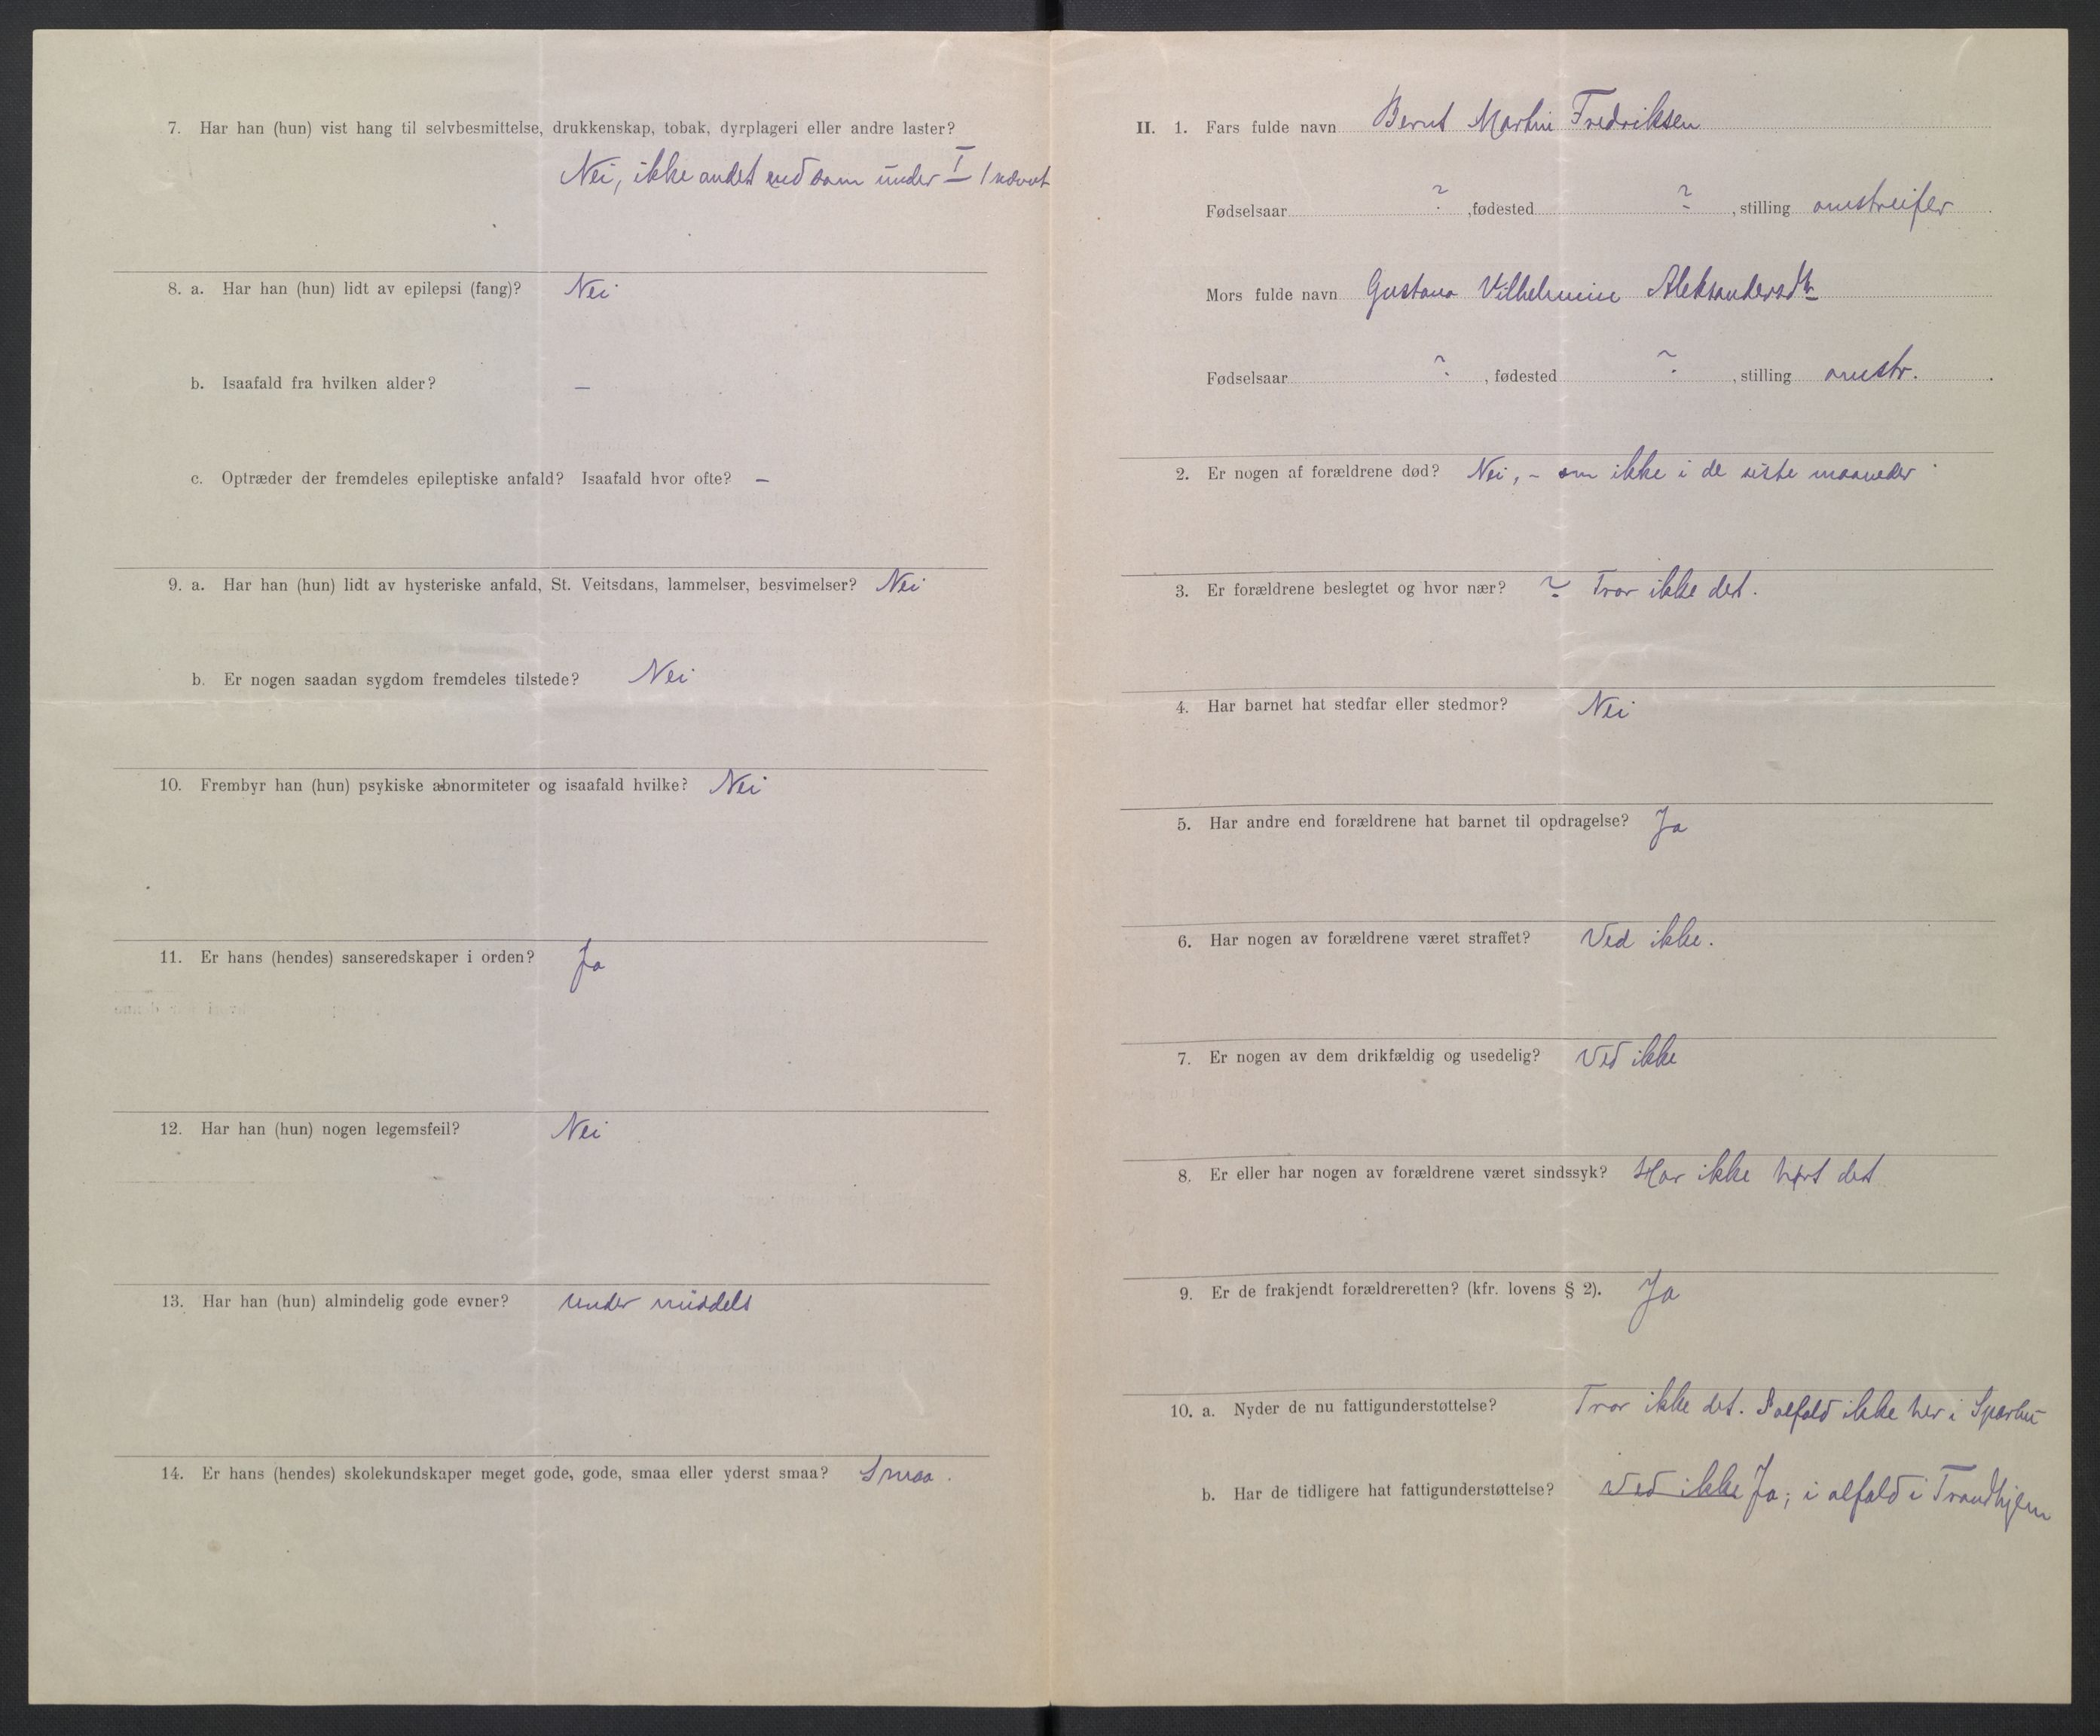 7. Har han (hun) vist hang til selvbesmittelse, drukkenskap, tobak, dyrplageri eller andre laster?
Nei, ikke andet end som under I 1 nævnt
8. a. Har han (hun) lidt av epilepsi (fang)? Nei
b. Isaafald fra hvilken alder? —
c. Optræder der fremdeles epileptiske anfald? Isaafald hvor ofte? —
9. a. Har han (hun) lidt av hysteriske anfald, St. Veitsdans, lammelser, besvimelser? Nei
b. Er nogen saadan sygdom fremdeles tilstede? Nei
10. Frembyr han (hun) psykiske abnormiteter og isaafald hvilke? Nei
11. Er hans (hendes) sanseredskaper i orden? Ja
12. Har han (hun) nogen legemsfeil? Nei
13. Har han (hun) almindelig gode evner? under middels
14. Er hans (hendes) skolekundskaper meget gode, gode, smaa eller yderst smaa? Smaa.
II. 1. Fars fulde navn Bernt Martin Fredriksen
Fødselsaar ? , fødested ? , stilling omstreifer.
Mors fulde navn Gustava Vilhelmine Aleksandersdtr
Fødselsaar ? , fødested ? , stilling omstr.
2. Er nogen af forældrene død? Nei, - om ikke i de siste maaneder.
3. Er forældrene beslegtet og hvor nær? ? Tror ikke det.
4. Har barnet hat stedfar eller stedmor? Nei
5. Har andre end forældrene hat barnet til opdragelse? Ja
6. Har nogen av forældrene været straffet? Ved ikke.
7. Er nogen av dem drikfældig og usedelig? Ved ikke
8. Er eller har nogen av forældrene været sindssyk? Har ikke hørt det
9. Er de frakjendt forældreretten? (kfr. lovens § 2). Ja
10. a. Nyder de nu fattigunderstøttelse? Tror ikke det. I alfald ikke her i Sparbu
b. Har de tidligere hat fattigunderstøttelse? Ved ikke Ja; i alfald i Trondhjem